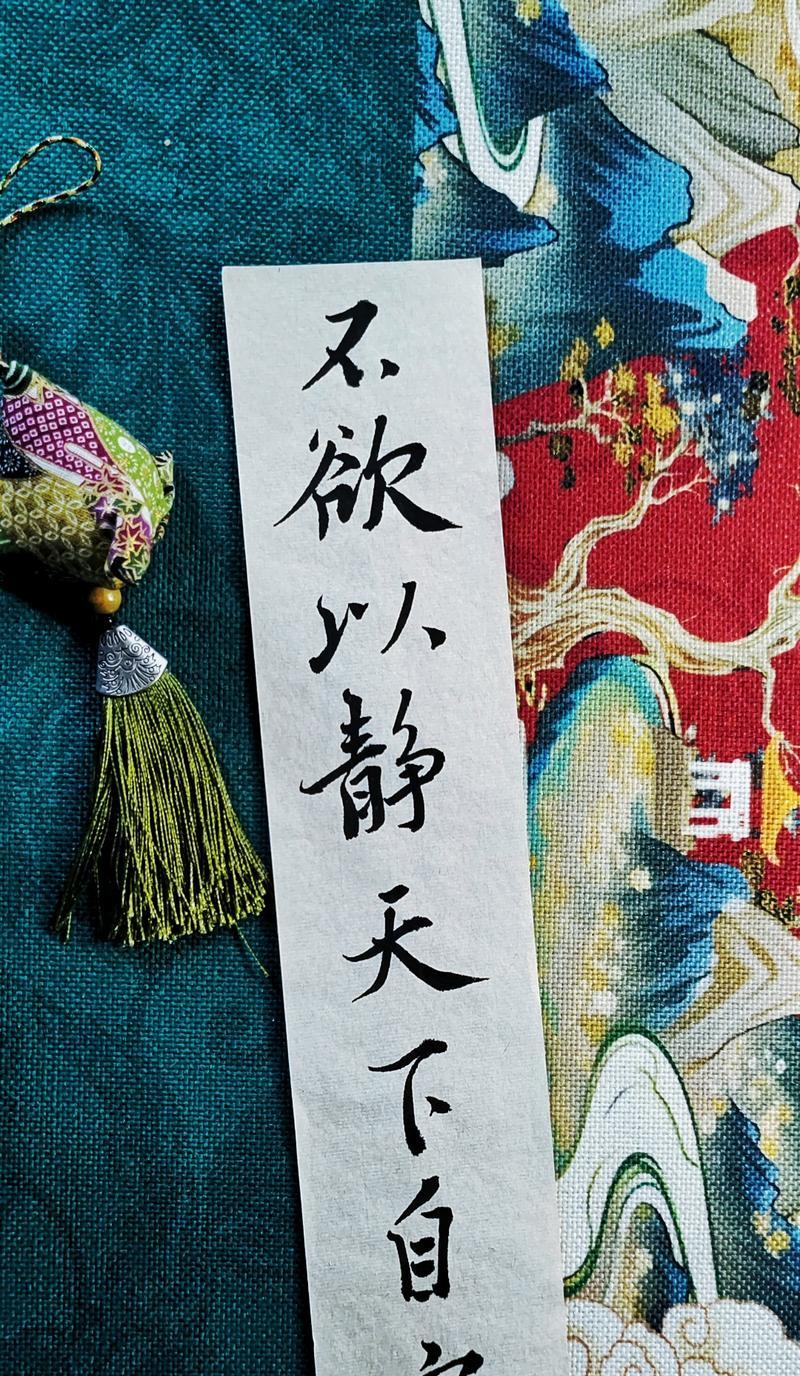 不欲以静天下自